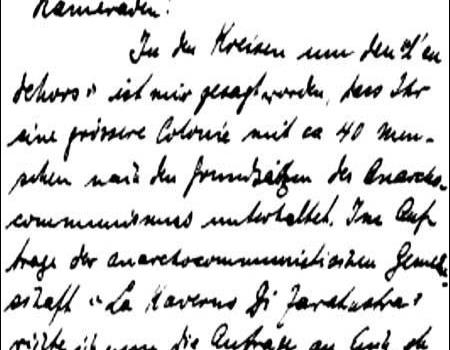 Kameraden!
In den Kreisen um den "l'en
dehors" ist mir gesagt worden, dass Ihr
eine grössere Colonie mit ca 40 Men-
schen nach den Grundsätzen des Anarcho-
communismus unterhaltet. Im Auf-
trage der anarchocommunistischen Gemein-
schaft "La Kaverno di Zaratustra"
richte ich nun die Anfrage an Euch ob